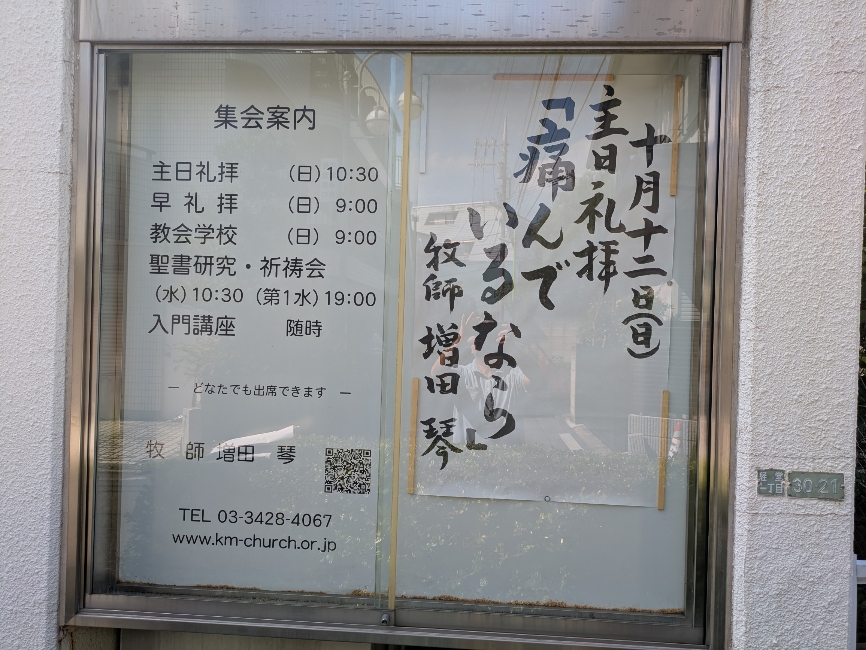 集会案内
主日礼拝 (日) 10:30
早礼拝 (日) 9:00
教会学校 (日) 9:00
聖書研究・祈祷会
(水) 10:30 (第1水) 19:00
入門講座 随時
― どなたでも出席できます ―
牧師 増田 琴
TEL 03-3428-4067
www.km-church.or.jp
十月十二日(日)
主日礼拝
「痛んで
いるなら」
牧師 増田 琴
一丁目
30-21